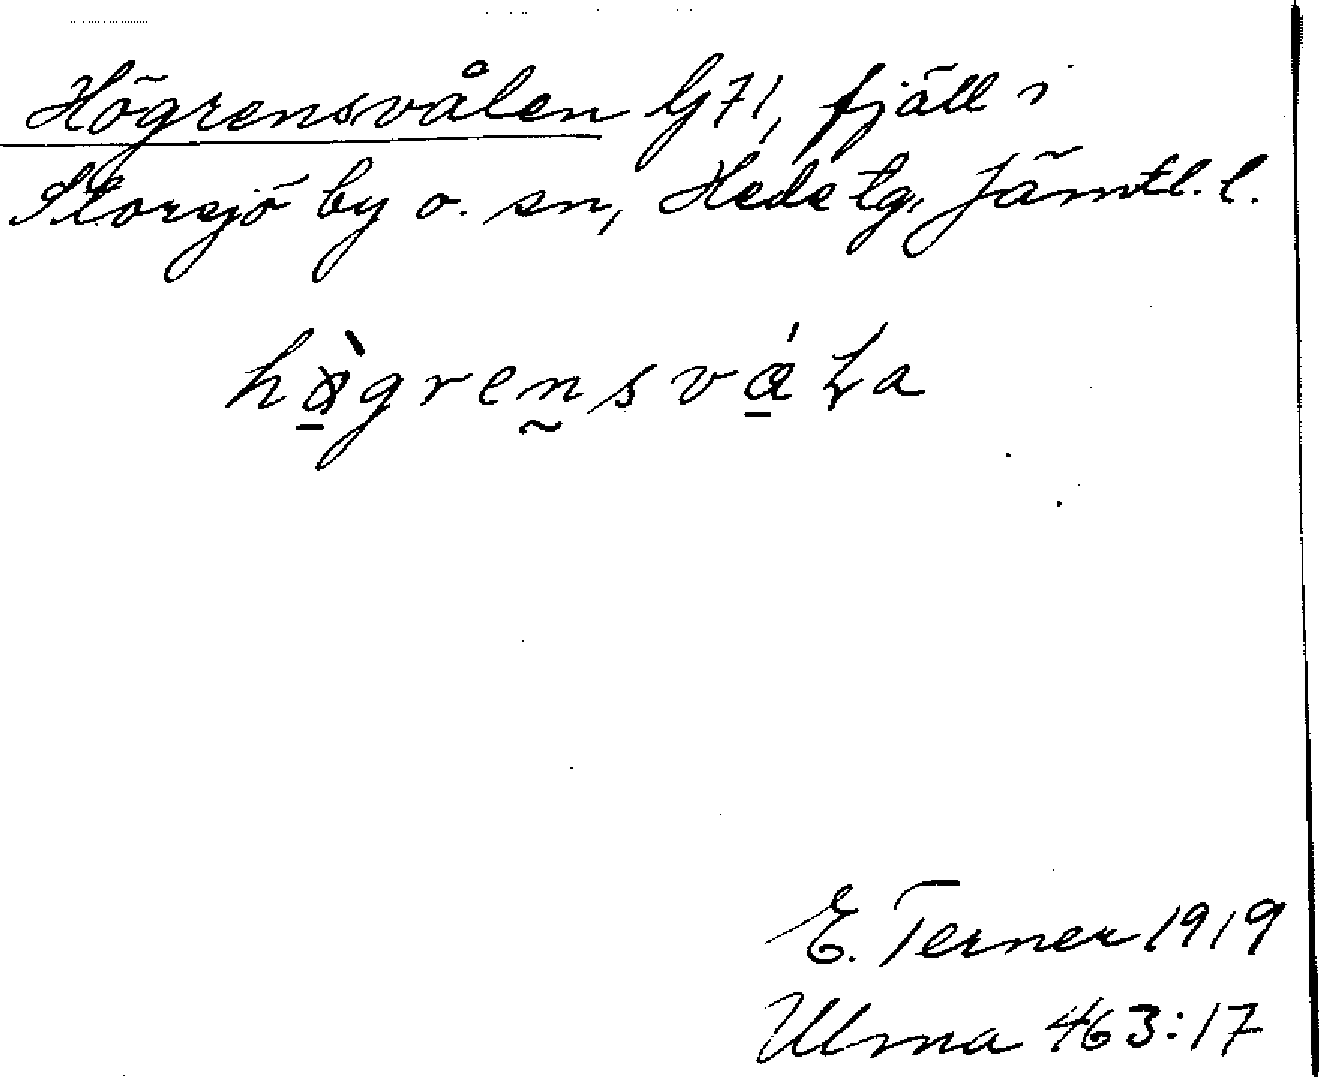 Högrensvålen G71, fjäll i
Storsjö by o. sn, Hede tg, Jämtl. l.
E. Terner 1919
Ulma 463:17